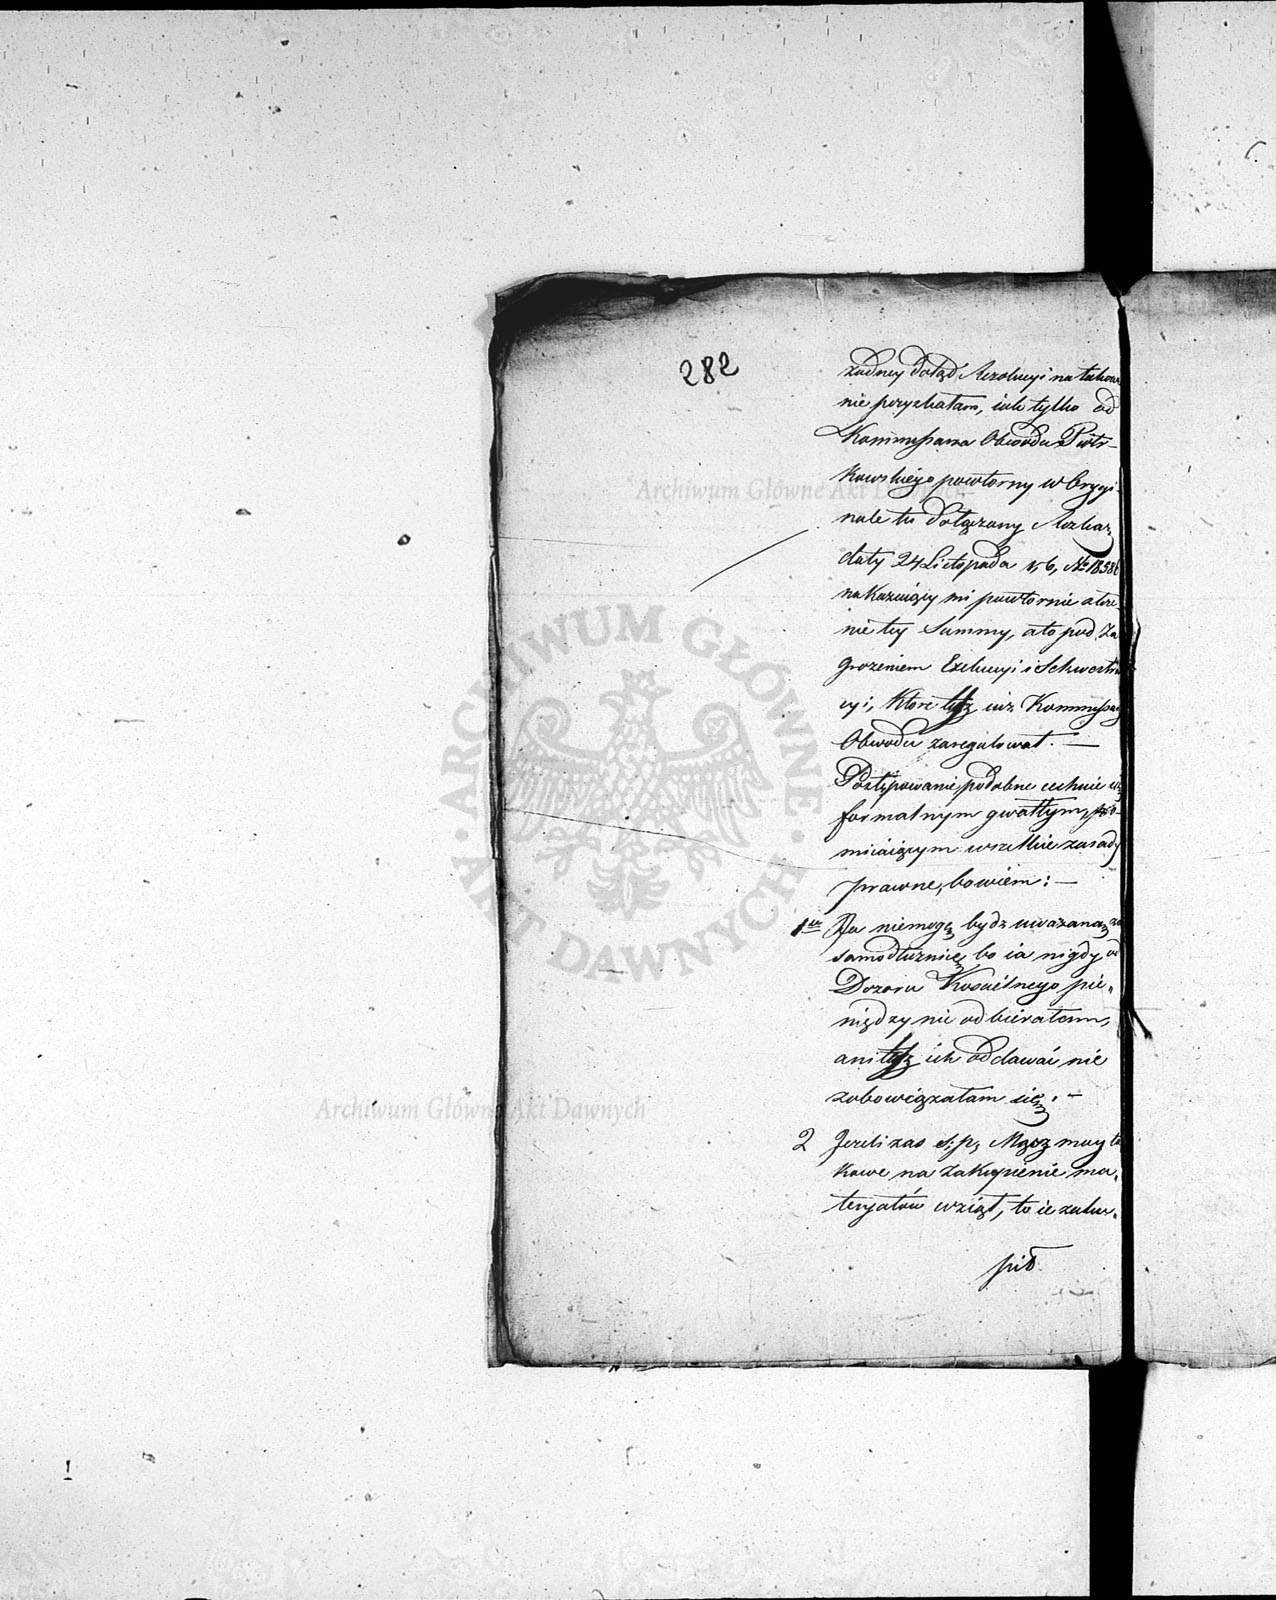 282
żadney dotąd Rezolucyi na takow
nie pozyskałam, iak tylko od
Kommissarza Obwodu Piotr-
kowskiego powtorny w Orygi-
nale tu dołączony Rozkaz
daty 24 Listopada r, b, No 1858
nakazuiący mi powtornie
nie tey Summy, a to pod za
grożeniem Exekucyi i Sekwestra
cyi, które też iuż Kommissarz
Obwodu zaregulował. —
Postępowanie podobne cechuie się
formalnym gwałtym,
miaiącym wszelkie zasady
prawne, bowiem: —
1sze Ja niemogę bydz uważana za
samodłużnicę bo ia nigdy od
Dozoru Kościelnego pie-
niędzy nie odbierałem,
ani też ich oddawać nie
zobowiązałam się: —
2 Jeżeli zas ś: p, Mąsz moy ta
kowe na zakupienie ma-
teryałów wziął, to ie zaku-
pił
Archiwum Główne Akt Dawnych
Archiwum Główne Akt Dawnych
ARCHIWUM GŁÓWNE · AKT DAWNYCH ·